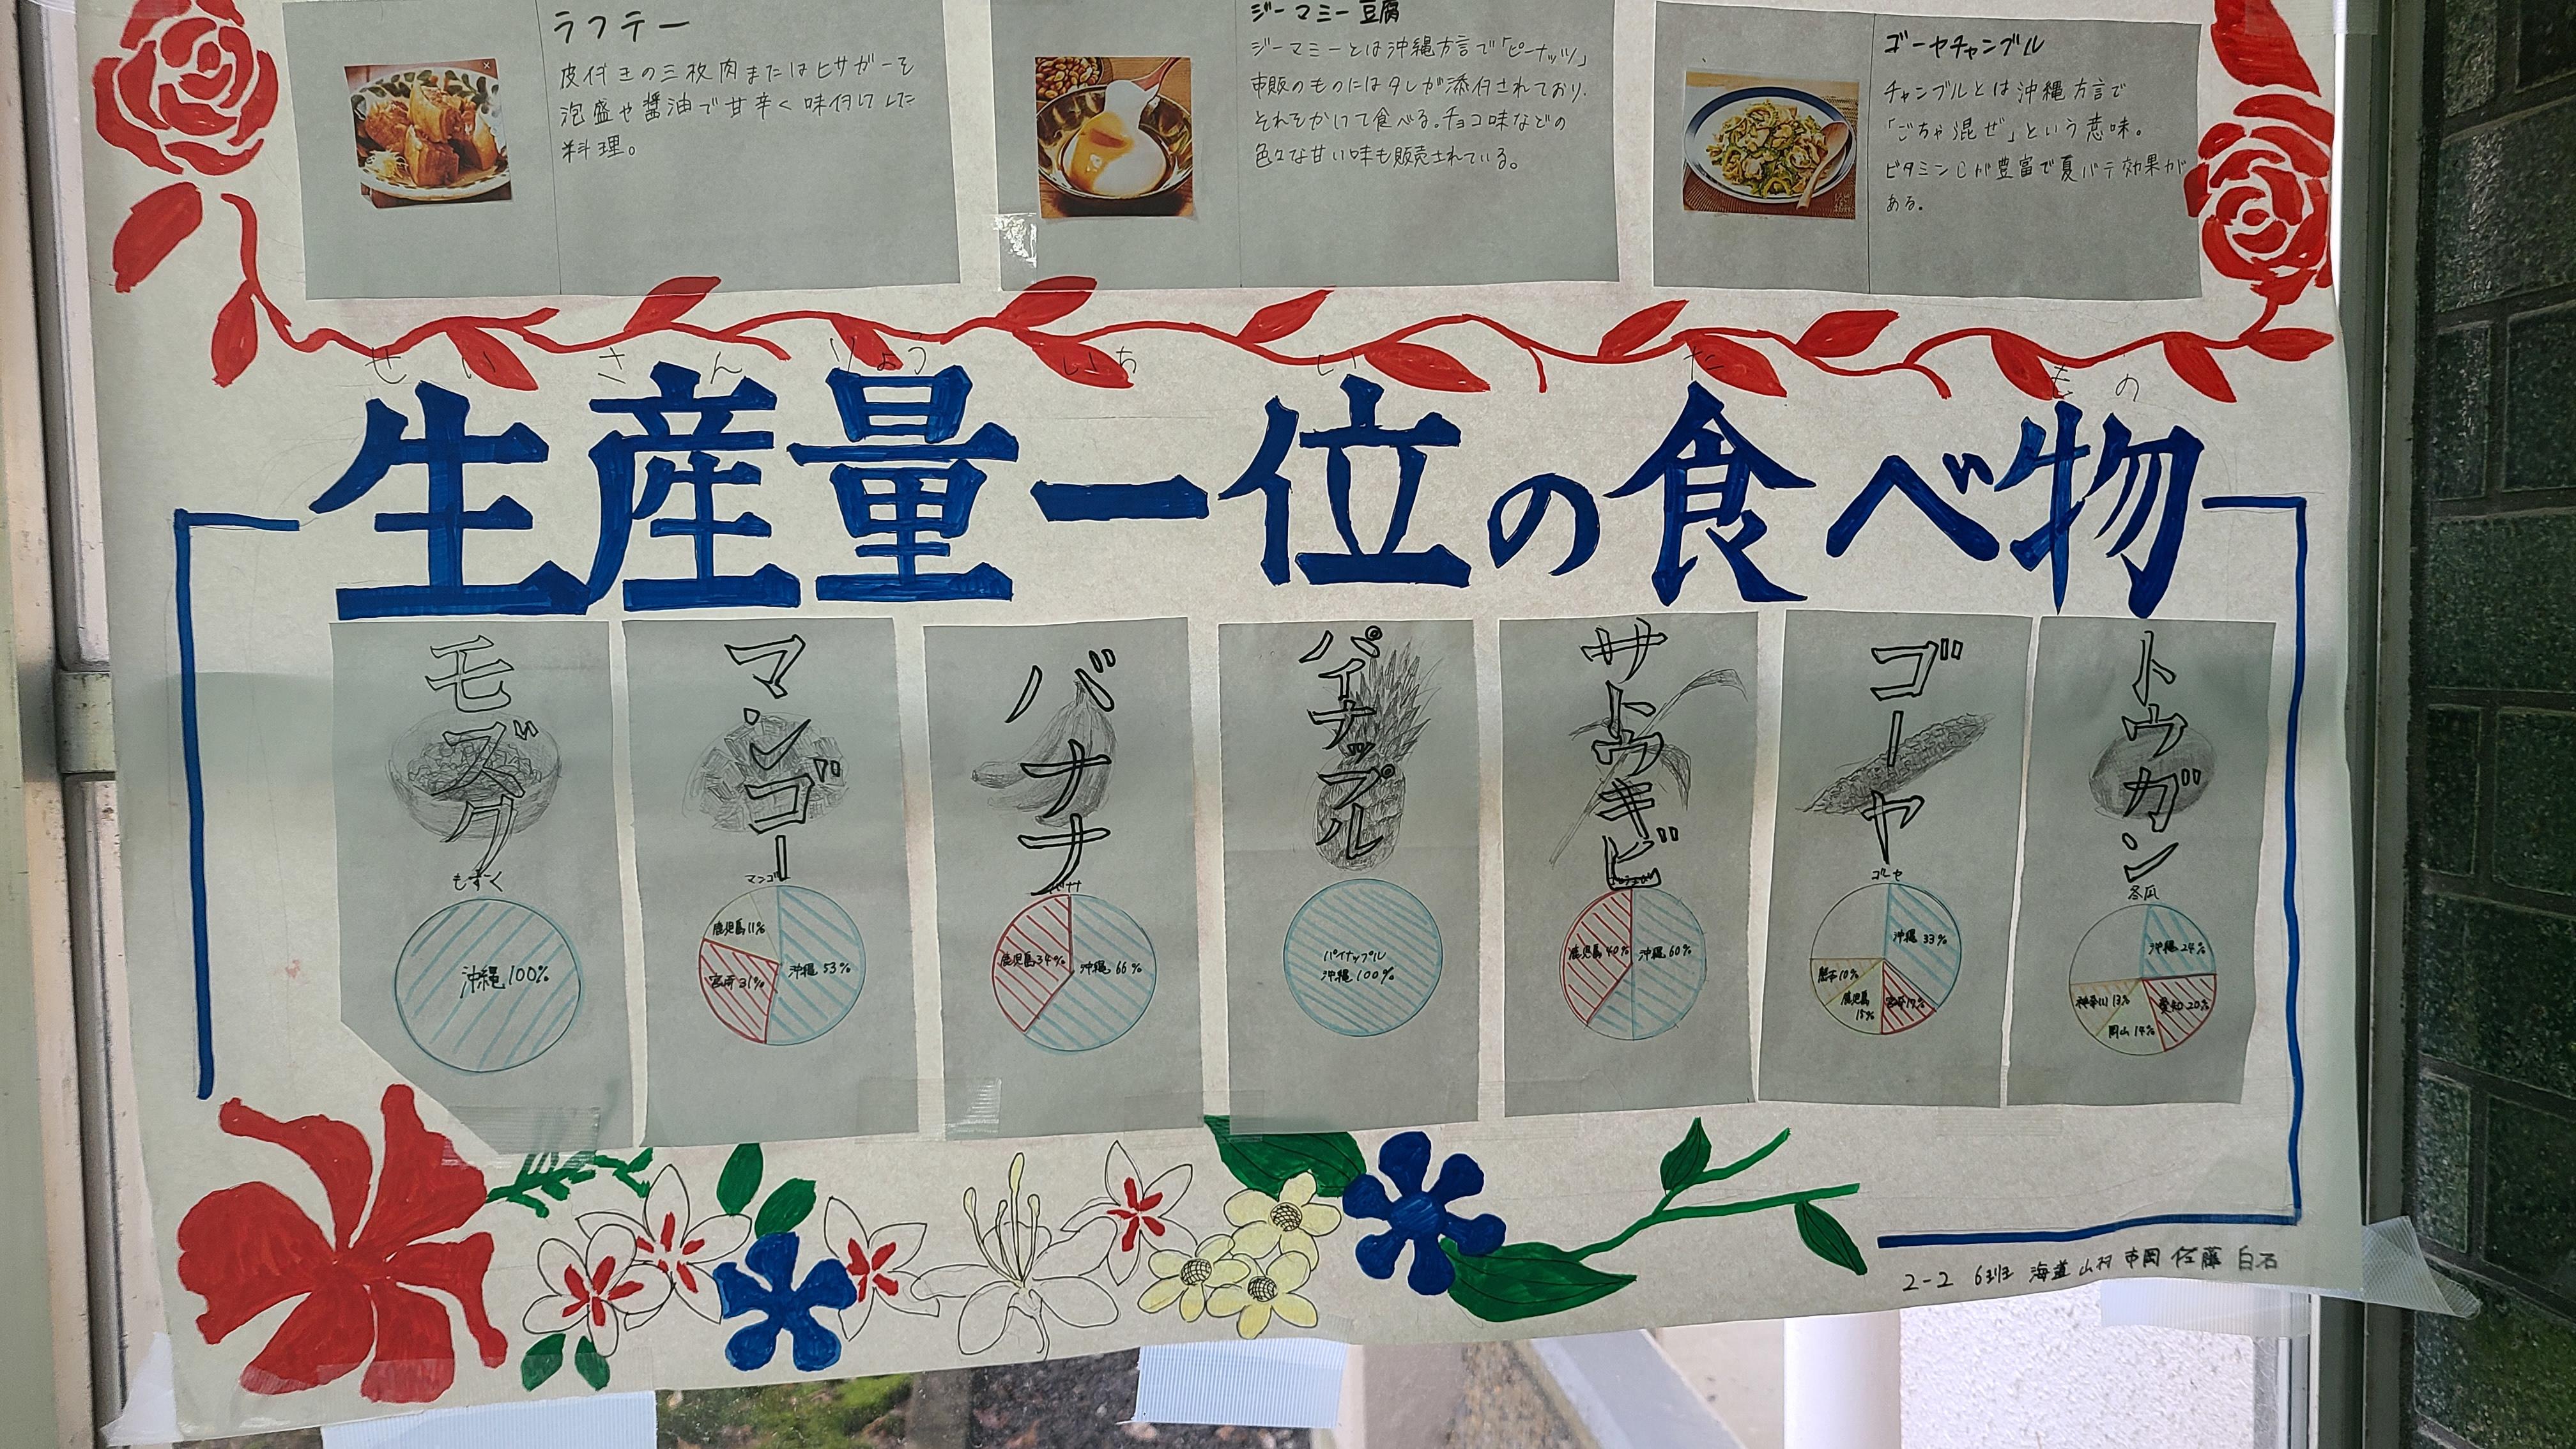 ラフテー
皮付きの三枚肉またはヒサガーを
泡盛や醤油で甘辛く味付けした
料理。
ジーマミー豆腐
ジーマミーとは沖縄方言で「ピーナッツ」
市販のものにはタレが添付されており、
それをかけて食べる。チョコ味などの
色々な甘い味も販売されている。
ゴーヤチャンプル
チャンプルとは沖縄方言で
「ごちゃ混ぜ」という意味。
ビタミンCが豊富で夏バテ効果が
ある。
せい さん りょう いち い た もの
生産量一位の食べ物
モズク
もずく
沖縄100%
マンゴー
マンゴ
鹿児島11%
宮崎31%
沖縄53%
バナナ
バナナ
鹿児島34%
沖縄66%
パイナップル
パイナップル
沖縄100%
サトウキビ
鹿児島40%
沖縄60%
ゴーヤ
ゴーヤ
沖縄33%
熊本10%
鹿児島
15%
トウガン
冬瓜
沖縄24%
神奈川13%
愛知20%
岡山14%
2-2 6班 海道 山村 市岡 佐藤 白石